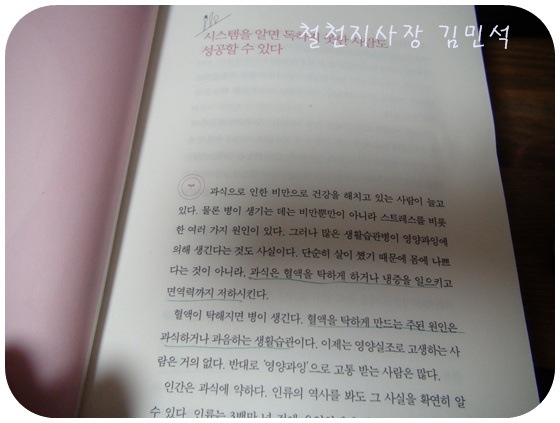 철천지사장 김민석
시스템을 알면 독하지 못한 사람도
성공할 수 있다
과식으로 인한 비만으로 건강을 해치고 있는 사람이 늘고
있다. 물론 병이 생기는 데는 비만뿐만이 아니라 스트레스를 비롯
한 여러 가지 원인이 있다. 그러나 많은 생활습관병이 영양과잉에
의해 생긴다는 것도 사실이다. 단순히 살이 쪘기 때문에 몸에 나쁘
다는 것이 아니라, 과식은 혈액을 탁하게 하거나 냉증을 일으키고
면역력까지 저하시킨다.
혈액이 탁해지면 병이 생긴다. 혈액을 탁하게 만드는 주된 원인은
과식하거나 과음하는 생활습관이다. 이제는 영양실조로 고생하는 사
람은 거의 없다. 반대로 '영양과잉'으로 고통 받는 사람은 많다.
인간은 과식에 약하다. 인류의 역사를 봐도 그 사실을 확연히 알
수 있다. 인류는 3백만 년 전에